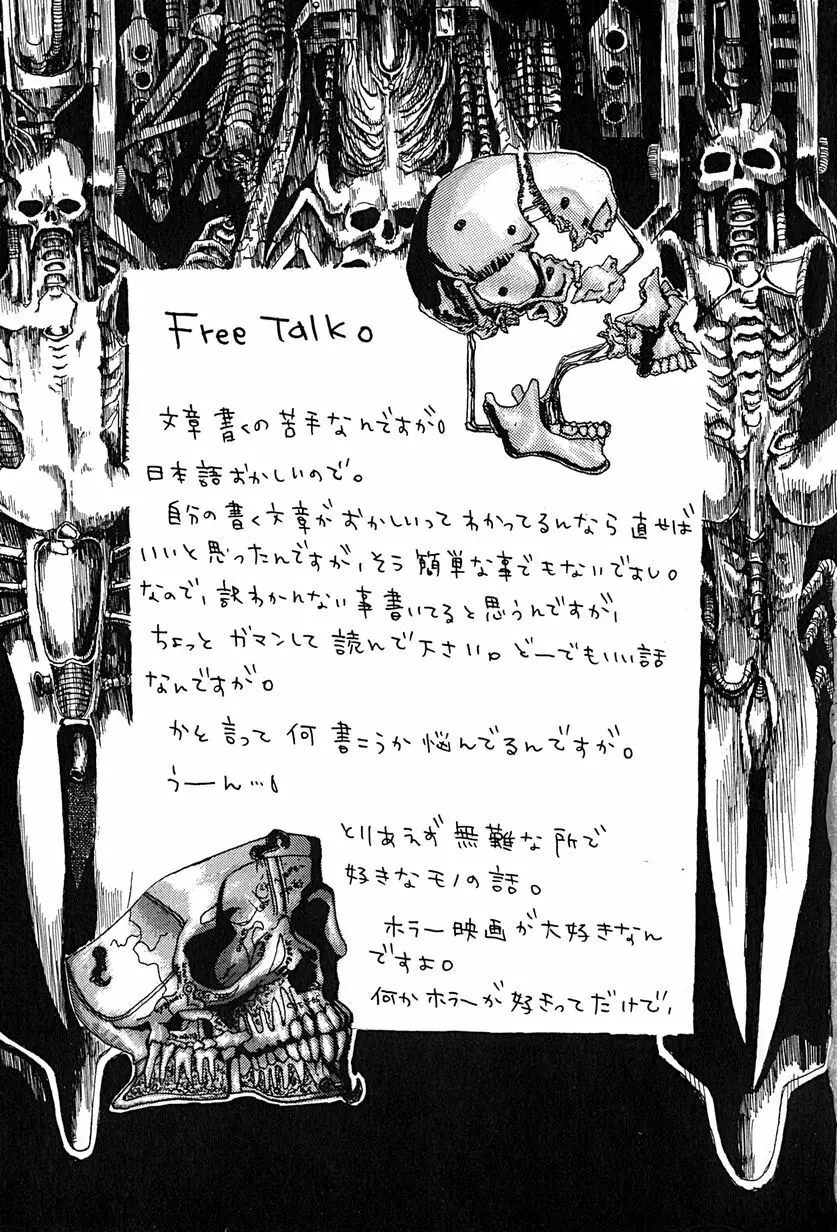 Free Talk。
文章書くの苦手なんですが。
日本語おかしいので。
自分の書く文章がおかしいってわかってるんなら直せば
いいと思ったんですが、そう簡単な事でもないですし。
なので、訳わかんない事書いてると思うんですが、
ちょっとガマンして読んで下さい。どーでもいい話
なんですが。
かと言って何書こうか悩んでるんですが。
うーん…。
とりあえず無難な所で
好きなモノの話。
ホラー映画が大好きなん
ですよ。
何かホラーが好きってだけで、